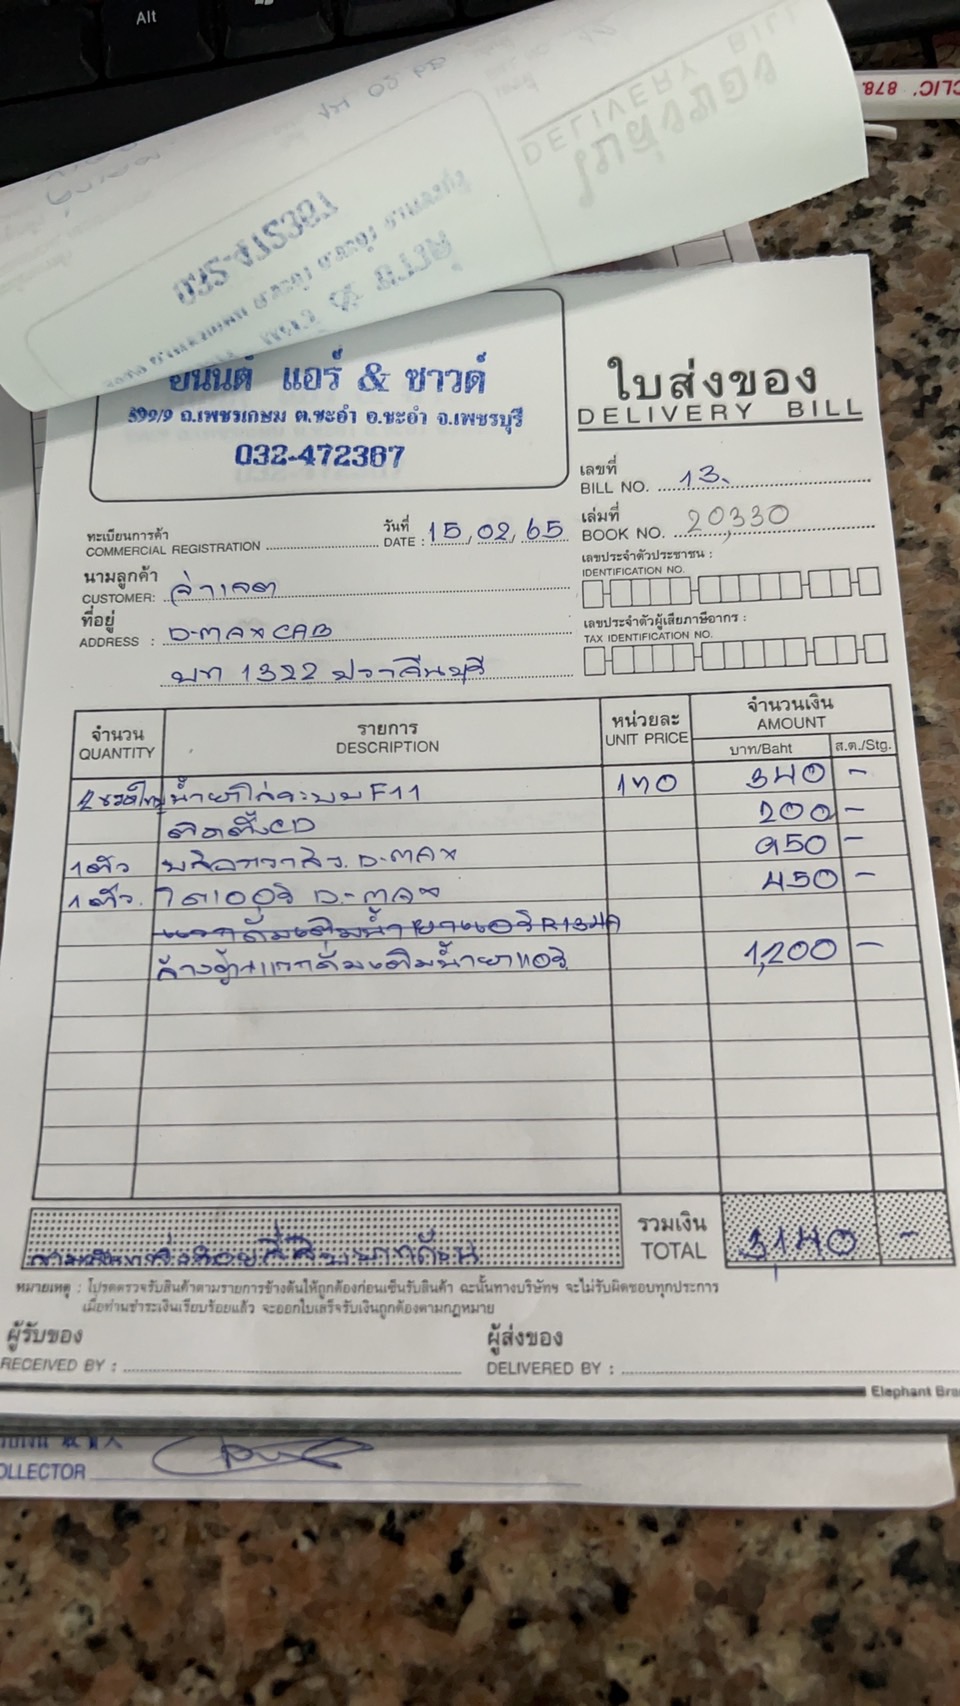 Alt
CLIC. 878.
DELIVERY BILL
ยนนต์ แอร์ & ซาวด์
599/9 ถ.เพชรเกษม ต.ชะอำ อ.ชะอำ จ.เพชรบุรี
032-472367
ใบส่งของ
DELIVERY BILL
เลขที่
BILL NO. 13.
ทะเบียนการค้า
COMMERCIAL REGISTRATION
วันที่
DATE : 15,02,65
เล่มที่
BOOK NO. 20,330
นามลูกค้า
CUSTOMER: จ่าเจต
เลขประจำตัวประชาชน :
IDENTIFICATION NO.
ที่อยู่
ADDRESS : D-MAX CAB
เลขประจำตัวผู้เสียภาษีอากร :
TAX IDENTIFICATION NO.
บท 1322 ปราจีนบุรี
จำนวน
QUANTITY
รายการ
DESCRIPTION
หน่วยละ
UNIT PRICE
จำนวนเงิน
AMOUNT
บาท/Baht
ส.ต./Stg.
2 ขวดใหญ่ น้ำยาไล่ระบบ F11 170 340 -
ติดตั้งCD 200 -
1 ตัว D-MAX 950 -
1 ตัว. ไดเออร์ D-MAX 450 -
แวคคั่มเติมน้ำยาแอร์ R134A
ล้างตู้+แวคคั่มเติมน้ำยาแอร์ 1,200 -
รวมเงิน
TOTAL 3,140 -
หมายเหตุ : โปรดตรวจรับสินค้าตามรายการข้างต้นให้ถูกต้องก่อนเซ็นรับสินค้า ฉะนั้นทางบริษัทฯ จะไม่รับผิดชอบทุกประการ
เมื่อท่านชำระเงินเรียบร้อยแล้ว จะออกใบเสร็จรับเงินถูกต้องตามกฎหมาย
ผู้รับของ
RECEIVED BY :
ผู้ส่งของ
DELIVERED BY :
Elephant Bra
OLLECTOR